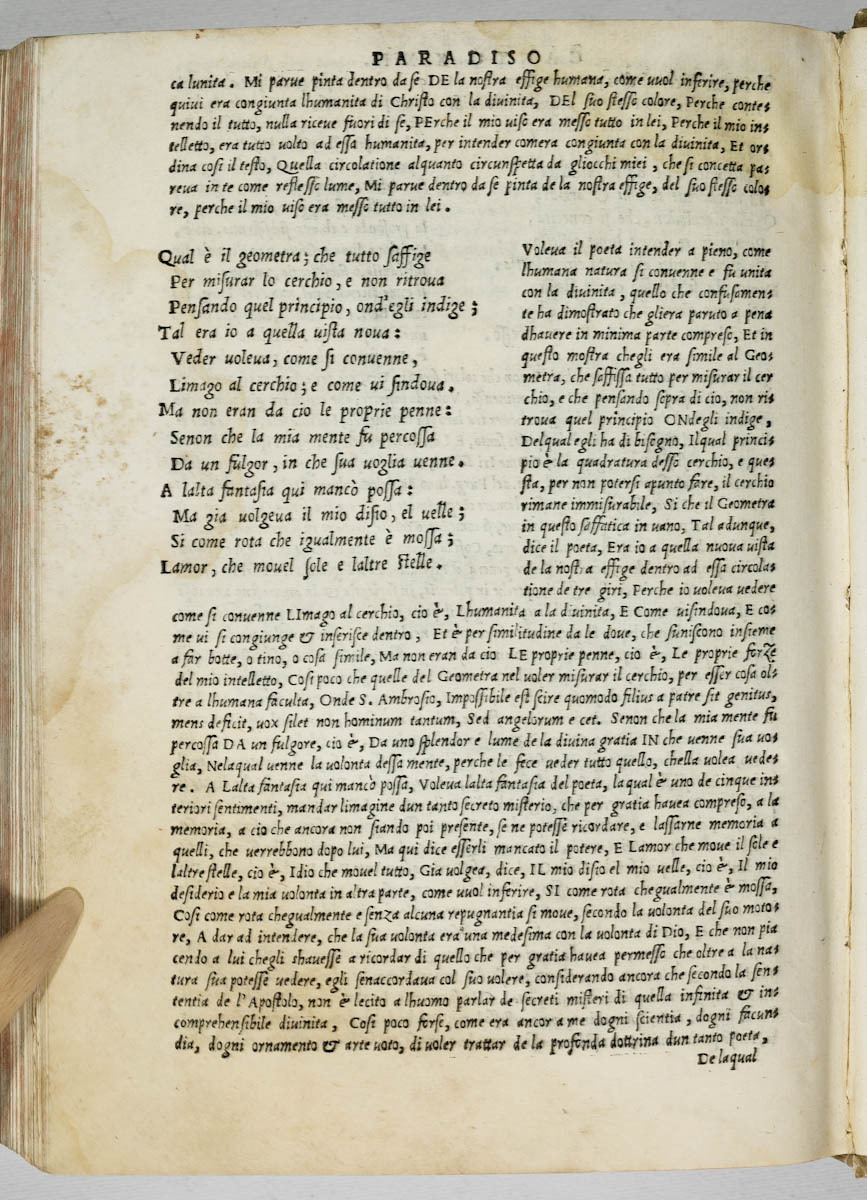 PARADISO
ca lunita. Mi parue pinta dentro da se DE la nostra effige humana, come uuol inferire, perche
quiui era congiunta lhumanita di Christo con la diuinita, DEl suo stesso colore, Perche conte-
nendo il tutto, nulla riceue fuori di se, PErche il mio uiso era messo tutto in lei, Perche il mio in-
telletto, era tutto uolto ad essa humanita, per intender comera congiunta con la diuinita, Et or-
dina cosi il testo, Quella circolatione alquanto circunspetta da gliocchi miei, che si concetta pa-
reua in te come reflesso lume, Mi parue dentro da se pinta de la nostra effige, del suo stesso colo-
re, perche il mio uiso era messo tutto in lei.
Qual è il geometra; che tutto saffige
Per misurar lo cerchio, e non ritroua
Pensando quel principio, ond'egli indige;
Tal era io a quella uista noua:
Veder uoleua, come si conuenne,
Limago al cerchio; e come ui sindoua.
Ma non eran da cio le proprie penne:
Senon che la mia mente fu percossa
Da un fulgor, in che sua uoglia uenne.
A lalta fantasia qui mancò possa:
Ma gia uolgeua il mio disio, el uelle;
Si come rota che igualmente è mossa;
Lamor, che mouel sole e laltre stelle.
Voleua il poeta intender a pieno, come
lhumana natura si conuenne e fu unita
con la diuinita, quello che confusamen-
te ha dimostrato che gliera paruto a pena
dhauere in minima parte compreso, Et in
questo mostra chegli era simile al Geo-
metra, che saffissa tutto per misurar il cer
chio, e che pensando sopra di cio, non ri-
troua quel principio ONdegli indige,
Delqual egli ha di bisegno, Ilqual princi-
pio è la quadratura desso cerchio, e que-
sta, per non potersi apunto fare, il cerchio
rimane immisurabile, Si che il Geometra
in questo saffatica in uano, Tal adunque,
dice il poeta, Era io a quella nuoua uista
de la nostra effige dentro ad essa circola-
tione de tre giri, Perche io uoleua uedere
come si conuenne LImago al cerchio, cio è, Lhumanita a la diuinita, E Come uisindoua, E co-
me ui si congiunge & inserisce dentro, Et è per similitudine da le doue, che suniscono insieme
a far botte, o tino, o cosa simile, Ma non eran da cio LE proprie penne, cio è, Le proprie forze
del mio intelletto, Cosi poco che quelle del Geometra nel uoler misurar il cerchio, per esser cosa ol-
tre a lhumana faculta, Onde S. Ambrosio, Impossibile est scire quomodo filius a patre sit genitus,
mens deficit, uox silet non hominum tantum, Sed angelorum e cet. Senon che la mia mente fu
percossa DA un fulgore, cio è, Da uno splendor e lume de la diuina gratia IN che uenne sua uo-
glia, Nelaqual uenne la uolonta dessa mente, perche le fece ueder tutto quello, chella uolea uede-
re. A Lalta fantasia qui mancò possa, Voleua lalta fantasia del poeta, laqual è uno de cinque in-
teriori sentimenti, mandar limagine dun tanto secreto misterio, che per gratia hauea compreso, a la
memoria, a cio che ancora non stando poi presente, se ne potesse ricordare, e lassarne memoria a
quelli, che uerrebbono dopo lui, Ma qui dice esserli mancato il potere, E Lamor che moue il sole e
laltre stelle, cio è, Idio che mouel tutto, Gia uolgea, dice, IL mio disio el mio uelle, cio è, Il mio
desiderio e la mia uolonta in altra parte, come uuol inferire, SI come rota chegualmente è mossa,
Cosi come rota chegualmente e senza alcuna repugnantia si moue, secondo la uolonta del suo moto-
re, A dar ad intendere, che la sua uolonta era una medesima con la uolonta di Dio, E che non pia
cendo a lui chegli shauesse a ricordar di quello che per gratia hauea permesso che oltre a la na-
tura sua potesse uedere, egli senaccordaua col suo uolere, considerando ancora che secondo la sen-
tentia de l'Apostolo, non è lecito a lhuomo parlar de secreti misteri di quella infinita & in-
comprehensibile diuinita, Cosi poco forse, come era ancor a me dogni scientia, dogni facun-
dia, dogni ornamento & arte uoto, di uoler trattar de la profonda dottrina dun tanto poeta,
De laqual